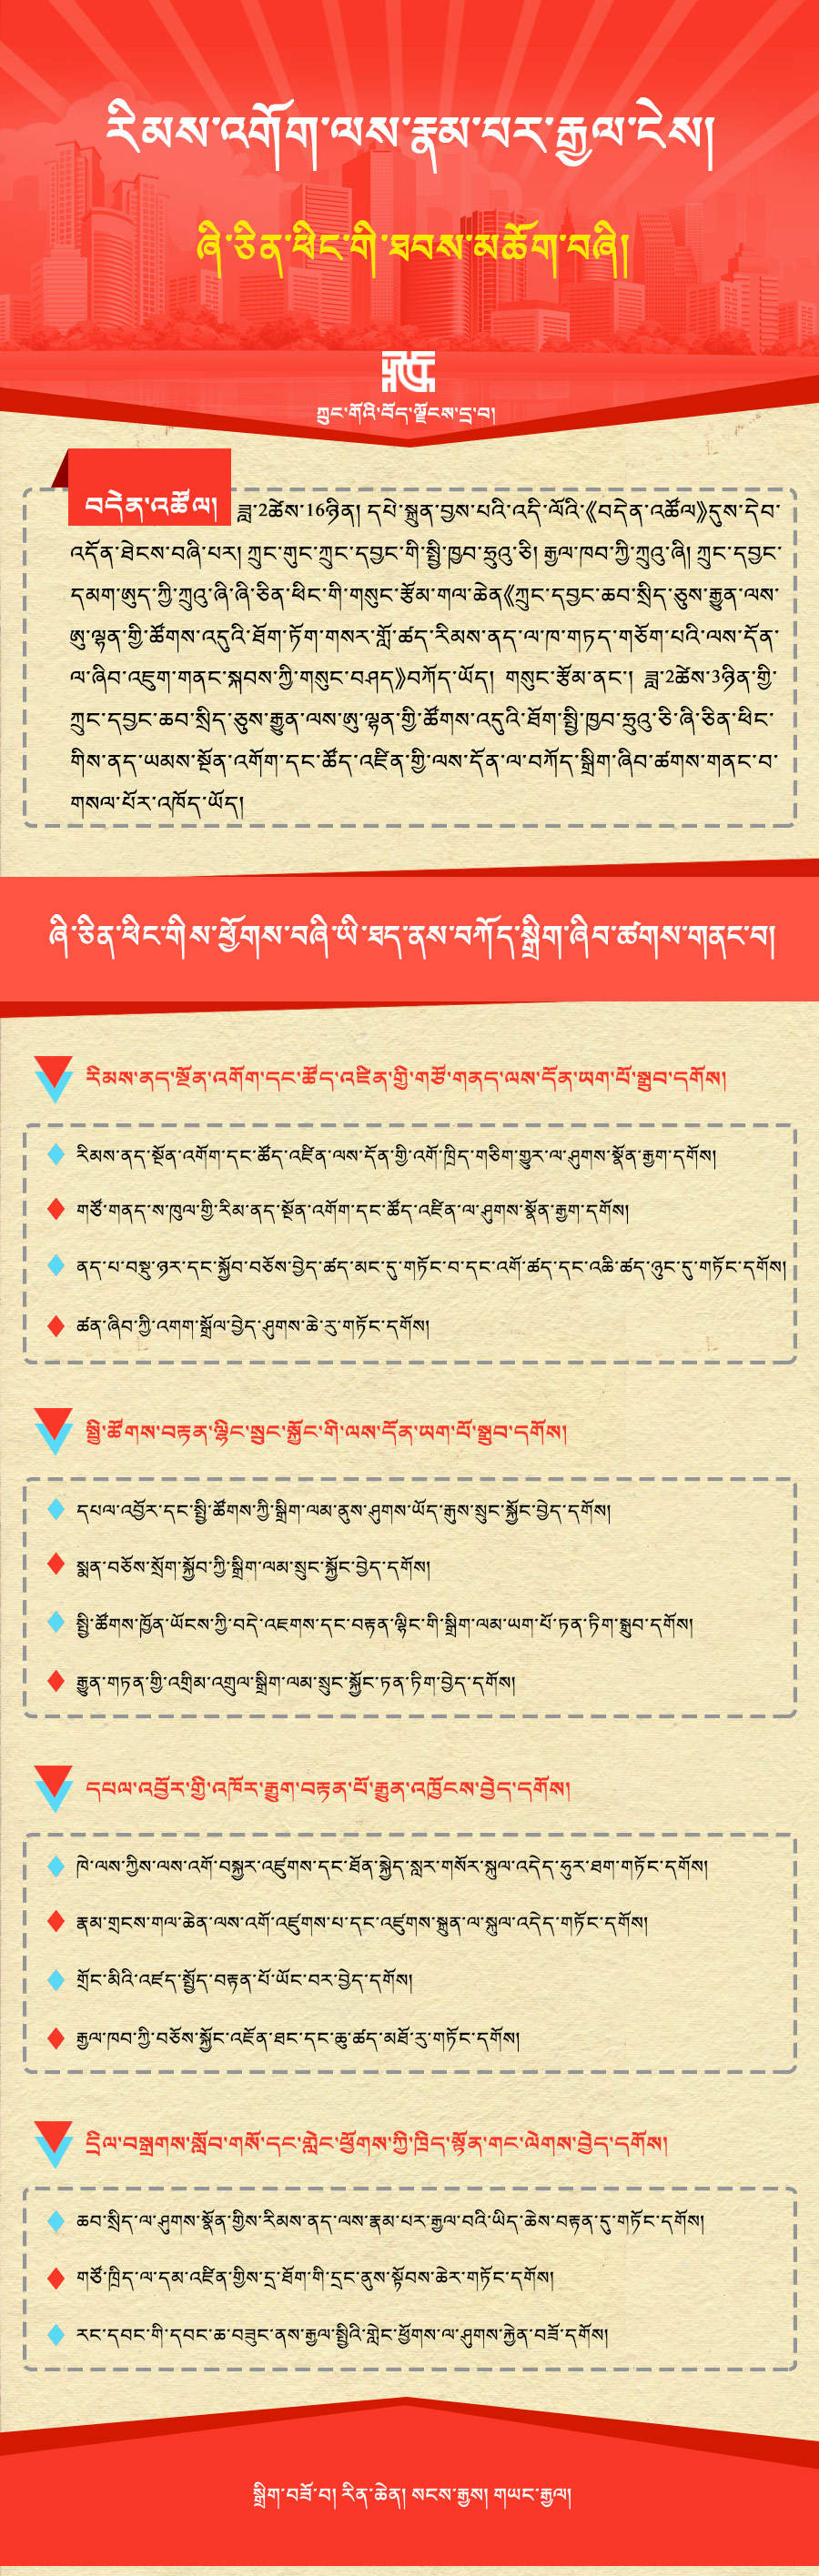 རིམས་འགོག་ལས་རྣམ་པར་རྒྱལ་ངེས།
ཞི་ཅིན་ཕིང་གི་ཐབས་མཆོག་བཞི།
ཀྲུང་གོའི་བོད་ལྗོངས་དྲ་བ།
བདེན་འཚོལ། ཟླ་2ཚེས་16ཉིན། དཔེ་སྐྲུན་བྱས་པའི་འདི་ལོའི་《བདེན་འཚོལ》དུས་དེབ་
འདོན་ཐེངས་བཞི་པར། ཀྲུང་གུང་ཀྲུང་དབྱང་གི་སྤྱི་ཁྱབ་ཧྲུའུ་ཅི། རྒྱལ་ཁབ་ཀྱི་ཀྲུའུ་ཞི། ཀྲུང་དབྱང་
དམག་ཨུད་ཀྱི་ཀྲུའུ་ཞི་ཞི་ཅིན་ཕིང་གི་གསུང་རྩོམ་གལ་ཆེན《ཀྲུང་དབྱང་ཆབ་སྲིད་ཅུས་རྒྱུན་ལས་
ཨུ་ལྷན་གྱི་ཚོགས་འདུའི་ཐོག་ཏོག་གསར་གློ་ཚད་རིམས་ནད་ལ་ཁ་གཏད་གཅོག་པའི་ལས་དོན་
ལ་ཞིབ་འཇུག་གནང་སྐབས་ཀྱི་གསུང་བཤད》བཀོད་ཡོད། གསུང་རྩོམ་ནང་། ཟླ་2ཚེས་3ཉིན་གྱི་
ཀྲུང་དབྱང་ཆབ་སྲིད་ཅུས་རྒྱུན་ལས་ཨུ་ལྷན་གྱི་ཚོགས་འདུའི་ཐོག་སྤྱི་ཁྱབ་ཧྲུའུ་ཅི་ཞི་ཅིན་ཕིང་
གིས་ནད་ཡམས་སྔོན་འགོག་དང་ཚོད་འཛིན་གྱི་ལས་དོན་ལ་བཀོད་སྒྲིག་ཞིབ་ཚགས་གནང་བ་
གསལ་པོར་འཁོད་ཡོད།
ཞི་ཅིན་ཕིང་གིས་ཕྱོགས་བཞི་ཡི་ཐད་ནས་བཀོད་སྒྲིག་ཞིབ་ཚགས་གནང་བ།
རིམས་ནད་སྔོན་འགོག་དང་ཚོད་འཛིན་གྱི་གཙོ་གནད་ལས་དོན་ཡག་པོ་སྒྲུབ་དགོས།
རིམས་ནད་སྔོན་འགོག་དང་ཚོད་འཛིན་ལས་དོན་གྱི་འགོ་ཁྲིད་གཅིག་གྱུར་ལ་ཤུགས་སྣོན་རྒྱག་དགོས།
གཙོ་གནད་ས་ཁུལ་གྱི་རིམ་ནད་སྔོན་འགོག་དང་ཚོད་འཛིན་ལ་ཤུགས་སྣོན་རྒྱག་དགོས།
ནད་པ་བསྡུ་ཉར་དང་སྐྱོབ་བཅོས་བྱེད་ཚད་མང་དུ་གཏོང་བ་དང་འགོ་ཚད་དང་འཆི་ཚད་ཉུང་དུ་གཏོང་དགོས།
ཚན་ཞིབ་ཀྱི་འགག་སྒྲོལ་བྱེད་ཤུགས་ཆེ་རུ་གཏོང་དགོས།
སྤྱི་ཚོགས་བརྟན་ལྷིང་སྲུང་སྐྱོང་གི་ལས་དོན་ཡག་པོ་སྒྲུབ་དགོས།
དཔལ་འབྱོར་དང་སྤྱི་ཚོགས་ཀྱི་སྒྲིག་ལམ་ནུས་ཤུགས་ཡོད་རྒུས་སྲུང་སྐྱོང་བྱེད་དགོས།
སྨན་བཅོས་སྲོག་སྐྱོབ་ཀྱི་སྒྲིག་ལམ་སྲུང་སྐྱོང་བྱེད་དགོས།
སྤྱི་ཚོགས་ཁྱོན་ཡོངས་ཀྱི་བདེ་འཇགས་དང་བརྟན་ལྷིང་གི་སྒྲིག་ལམ་ཡག་པོ་ཏན་ཏིག་སྒྲུབ་དགོས།
རྒྱུན་གཏན་གྱི་འགྲིམ་འགྲུལ་སྒྲིག་ལམ་སྲུང་སྐྱོང་ཏན་ཏིག་བྱེད་དགོས།
དཔལ་འབྱོར་གྱི་འཁོར་རྒྱུག་བརྟན་པོ་རྒྱུན་འཁྱོངས་བྱེད་དགོས།
ཁེ་ལས་ཀྱིས་ལས་འགོ་བསྐྱར་འཛུགས་དང་ཐོན་སྐྱེད་སླར་གསོར་སྐུལ་འདེད་ཧུར་ཐག་གཏོང་དགོས།
རྣམ་གྲངས་གལ་ཆེན་ལས་འགོ་འཛུགས་པ་དང་འཛུགས་སྐྲུན་ལ་སྐུལ་འདེད་གཏོང་དགོས།
གྲོང་མིའི་འཛད་སྤྱོད་བརྟན་པོ་ཡོང་བར་བྱེད་དགོས།
རྒྱལ་ཁབ་ཀྱི་བཅོས་སྐྱོང་འཇོན་ཐང་དང་ཆུ་ཚད་མཐོ་རུ་གཏོང་དགོས།
དྲིལ་བསྒྲགས་སློབ་གསོ་དང་གླེང་ཕྱོགས་ཀྱི་ཁྲིད་སྟོན་གང་ལེགས་བྱེད་དགོས།
ཆབ་སྲིད་ལ་ཤུགས་སྣོན་གྱིས་རིམས་ནད་ལས་རྣམ་པར་རྒྱལ་བའི་ཡིད་ཆེས་བརྟན་དུ་གཏོང་དགོས།
གཙོ་ཁྲིད་ལ་དམ་འཛིན་གྱིས་དྲ་ཐོག་གི་དྲང་ནུས་སྟོབས་ཆེར་གཏོང་དགོས།
རང་དབང་གི་དབང་ཆ་བཟུང་ནས་རྒྱལ་སྤྱིའི་གླེང་ཕྱོགས་ལ་ཤུགས་རྐྱེན་བཟོ་དགོས།
སྒྲིག་བཟོ་བ། རིན་ཆེན། སངས་རྒྱས། གཡང་རྒྱལ།